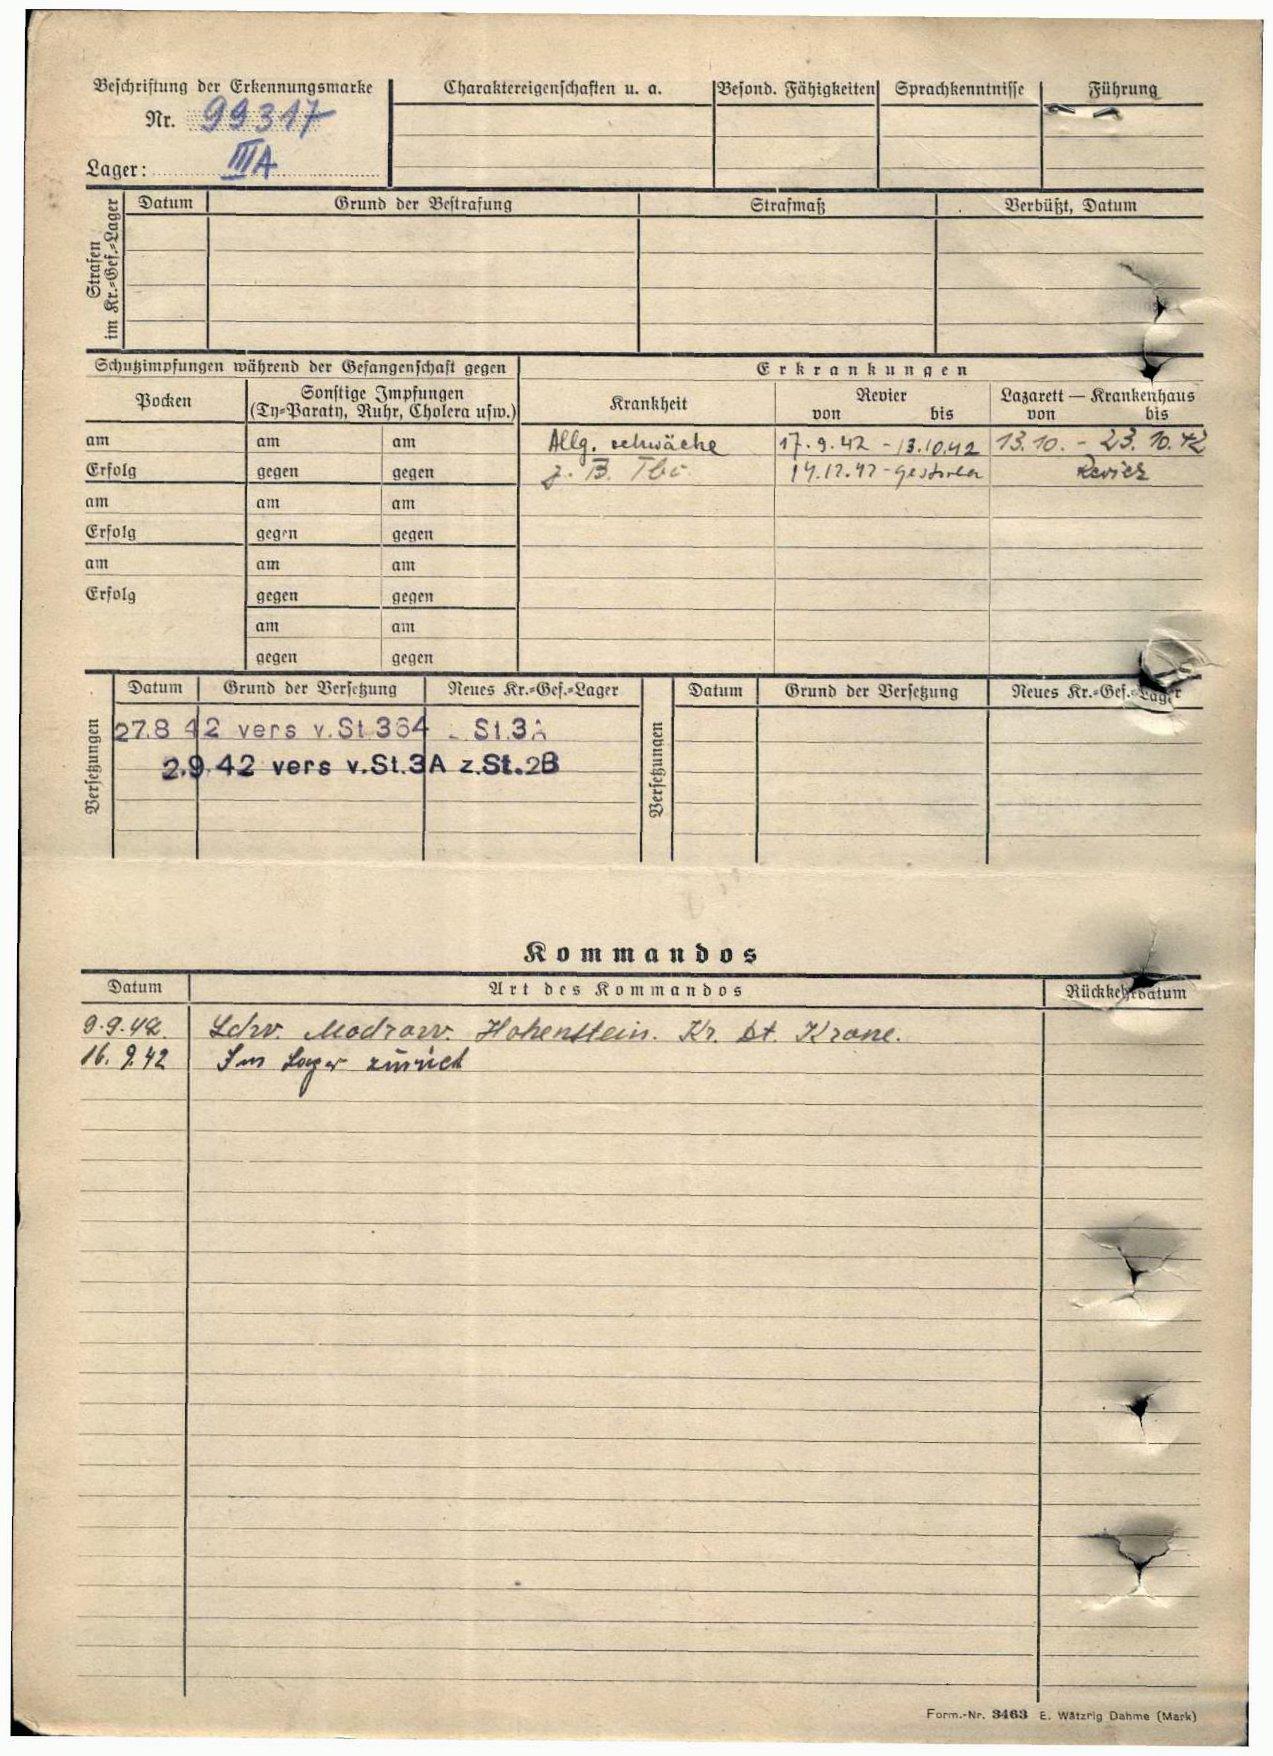 Beschriftung der Erkennungsmarke
Nr. 99317
Lager: III A
Charaktereigenschaften u. a.
Besond. Fähigkeiten
Sprachkenntnisse
Führung
Strafen im Kr.=Gef.=Lager
Datum
Grund der Bestrafung
Strafmaß
Verbüßt, Datum
Schutzimpfungen während der Gefangenschaft gegen
Erkrankungen
Pocken
Sonstige Impfungen
(Ty=Paraty, Ruhr, Cholera usw.)
Krankheit
Revier
von bis
Lazarett — Krankenhaus
von bis
am am am
Allg. schwäche 17.9.42 - 13.10.42 13.10. - 23.10.42
Erfolg gegen gegen
z. B. Tbc 14.12.42 - gestorben Revier
am am am
Erfolg gegen gegen
am am am
Erfolg gegen gegen
am am
gegen gegen
Versetzungen
Datum Grund der Versetzung Neues Kr.=Gef.=Lager
27.8 42 vers v.St 364 - St.3A
2.9.42 vers v.St.3A z.St.2B
Versetzungen
Datum Grund der Versetzung Neues Kr.=Gef.=Lager
Kommandos
Datum Art des Kommandos Rückkehrdatum
9.9.42. Ldw. Modrow. Hohenstein. Kr. Dt. Krone.
16.9.42 Ins Lager zurück
Form.-Nr. 3463 E. Wätzrig Dahme (Mark)